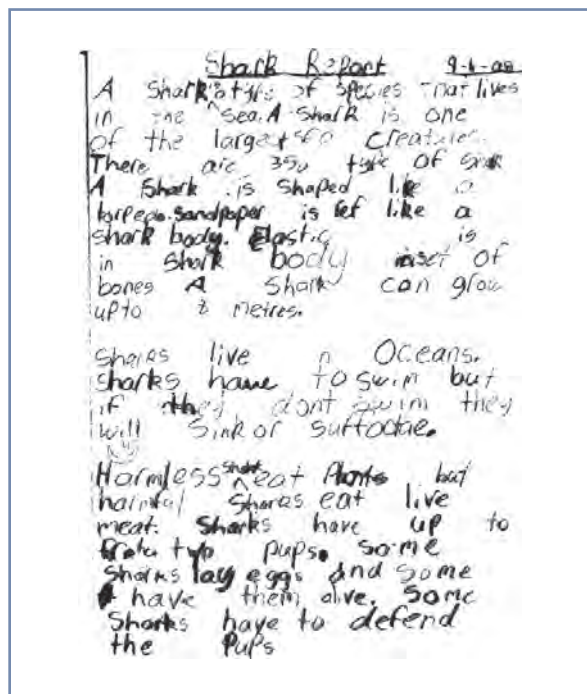 Shark Report 9-6-08
A Shark is a type of species that lives
in the sea. A Shark is one
of the largest sea creatures.
There are 350 type of
A Shark is shaped like a
torpedo. sandpaper is like a
shark body. Elastic is
in shark body of
bones A Shark can grow
up to metres.
sharks live in Oceans.
sharks have to swim but
if they dont swim they
will Sink or
Harmless shark eat Plants but
harmful sharks eat live
meat. Sharks have up to
two pups. some
sharks lay eggs and some
have them alive. Some
Sharks have to defend
the Pups